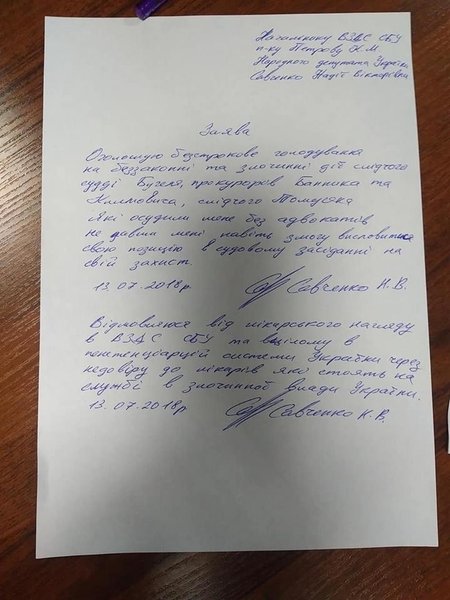 Начальнику ВЗДС СБУ
п-ку Петрову К.М.
Народного депутата України
Савченко Надії Вікторівни
Заява
Оголошую безстроково голодування
на беззаконні та злочинні дії слідчого
судді Бугеля, прокурорів Банника та
Климовича, слідчого
які осудили мене без адвокатів
не давши мені навіть змогу висловити
свою позицію в судовому засіданні на
свій захист.
13.07.2018р. Савченко Н.В.
Відмовляюся від лікарського нагляду
в ВЗДС СБУ та вцілому в
пенітенціарній системи України через
недовіру до лікарів які стоять на
службі в злочинної Влади України.
13.07.2018р. Савченко Н.В.